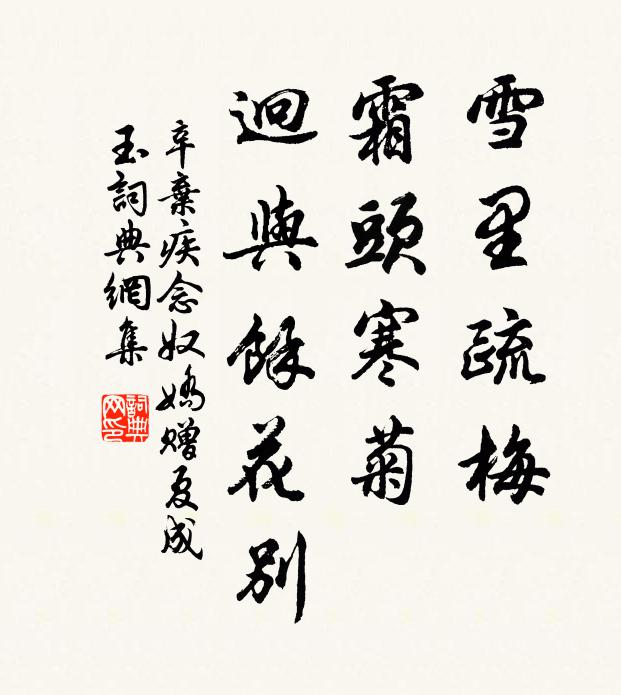 雪里疏梅
霜頭寒菊
迥與餘花別
辛棄疾念奴嬌贈夏成
玉詞典網集
詞典網印